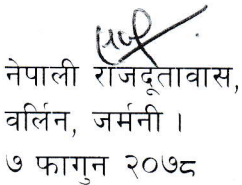 नेपाली राजदूतावास,
वर्लिन, जर्मनी ।
७ फागुन २०७८